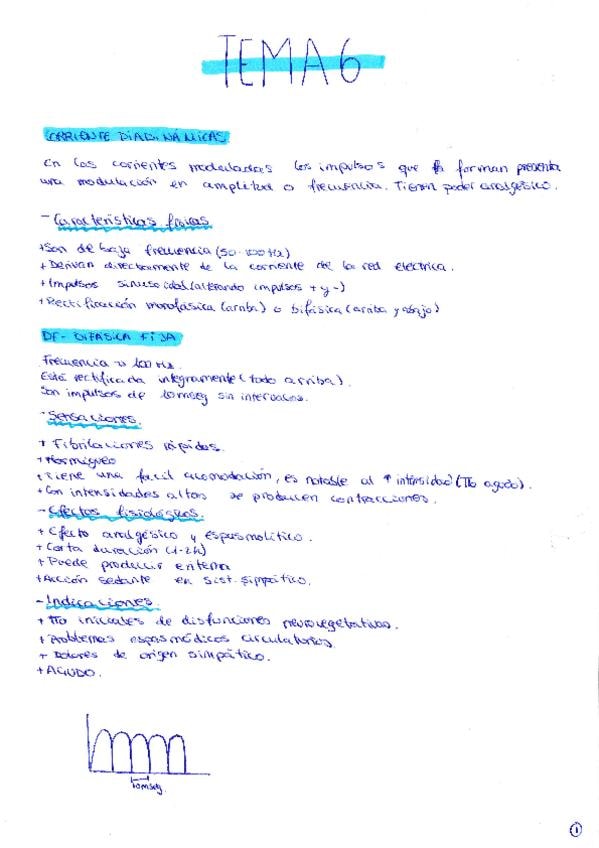 TEMA 6
CORRIENTE DIADINÁMICAS
En las corrientes moduladas los impulsos que la forman presenta
una modulación en amplitud o frecuencia. Tienen poder analgésico.
- Características físicas
+ Son de baja frecuencia (50-100Hz)
+ Derivan directamente de la corriente de la red eléctrica.
+ Impulsos sinusoidal (alterando impulsos + y -)
+ Rectificación monofásica (arriba) o bifásica (arriba y abajo)
DF- DIFASICA FIJA
Frecuencia 100 Hz.
Está rectificada integramente (todo arriba).
Son impulsos de 10mseg sin intervalos.
- Sensaciones.
+ Fibrilaciones rápidas.
+ Hormigueo
+ Tiene una facil acomodación, es notable al ↑ intensidad (Tto agudo).
+ Con intensidades altas se producen contracciones.
- Efectos fisiológicos.
+ Efecto analgésico y espasmolítico.
+ Corta duración (1-2h)
+ Puede producir eritema
+ Acción sedante en sist. simpático.
- Indicaciones.
+ Tto iniciales de disfunciones neurovegetativas.
+ Problemas espasmódicos circulatorios.
+ Dolores de origen simpático.
+ AGUDO.
10mseg.
1